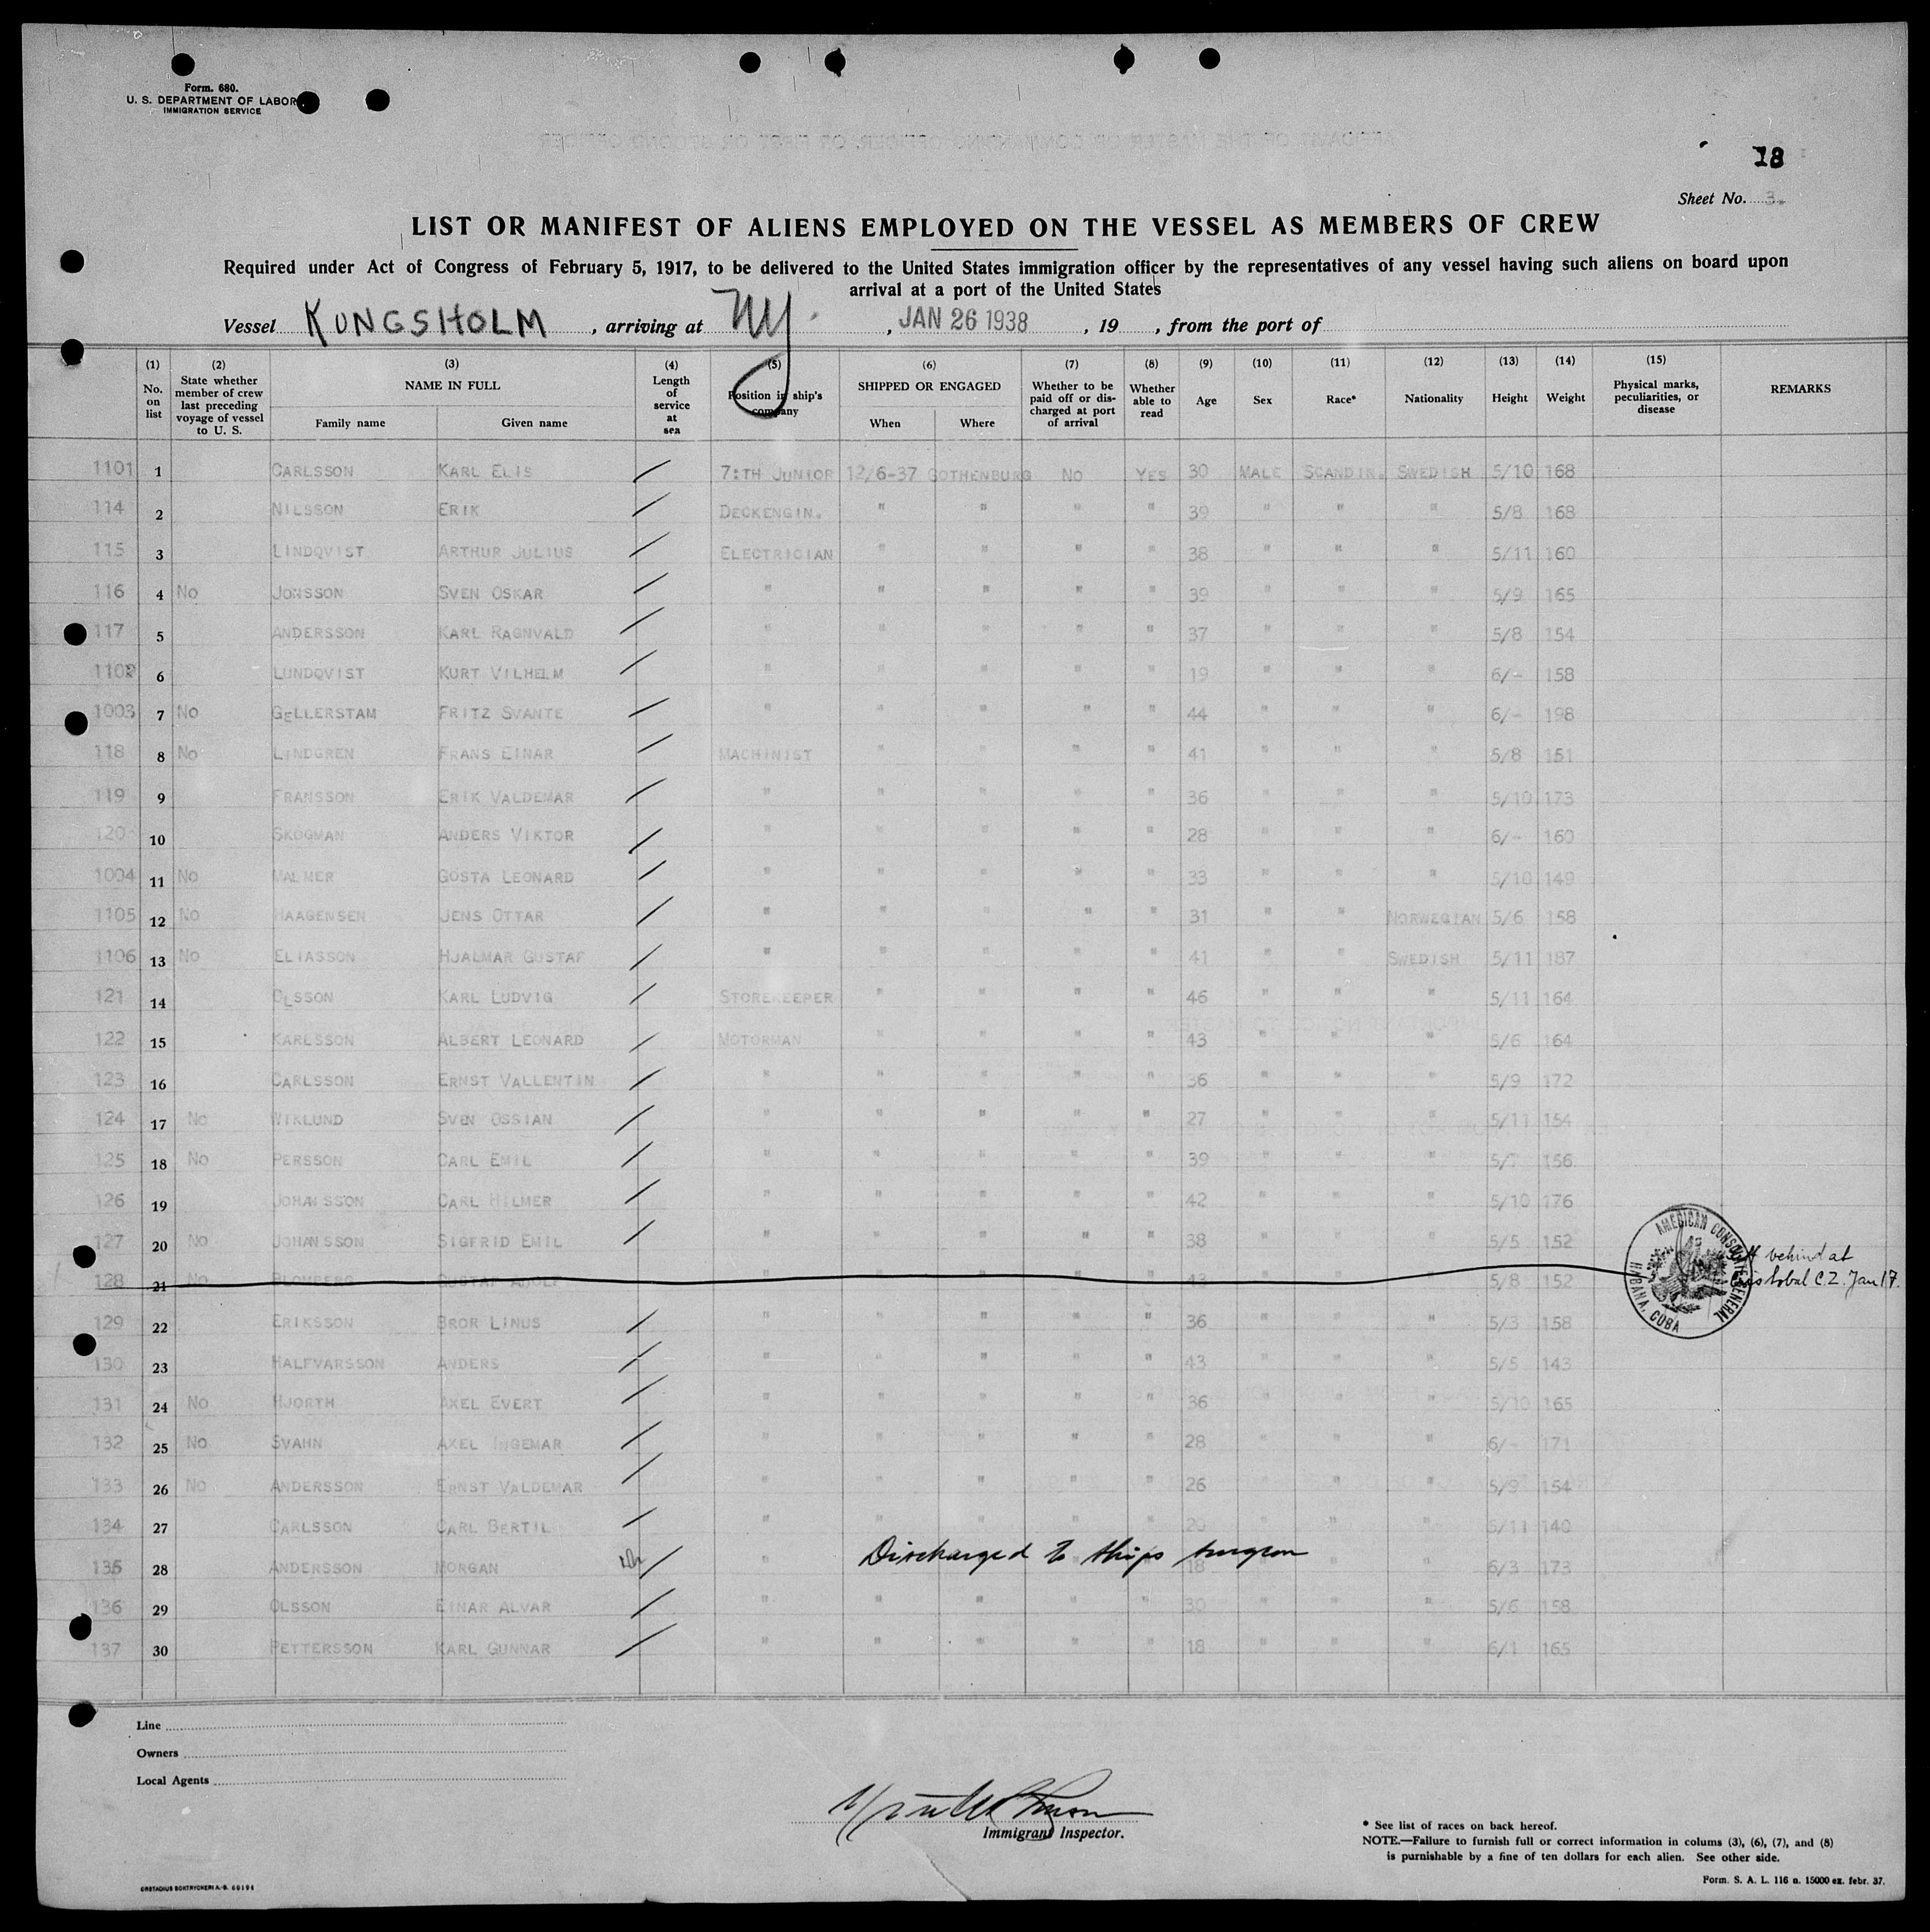 Form. 680.
U. S. DEPARTMENT OF LABOR
IMMIGRATION SERVICE
18
Sheet No. 3.
LIST OR MANIFEST OF ALIENS EMPLOYED ON THE VESSEL AS MEMBERS OF CREW
Required under Act of Congress of February 5, 1917, to be delivered to the United States immigration officer by the representatives of any vessel having such aliens on board upon
arrival at a port of the United States
Vessel KUNGSHOLM , arriving at NY. , JAN 26 1938 , 19 , from the port of
(1) No. on list
(2) State whether member of crew last preceding voyage of vessel to U. S.
(3) NAME IN FULL Family name Given name
(4) Length of service at sea
(5) Position in ship's company
(6) SHIPPED OR ENGAGED When Where
(7) Whether to be paid off or discharged at port of arrival
(8) Whether able to read
(9) Age
(10) Sex
(11) Race*
(12) Nationality
(13) Height
(14) Weight
(15) Physical marks, peculiarities, or disease
REMARKS
1101 1 CARLSSON KARL ELIS 7:TH JUNIOR 12/6-37 GOTHENBURG NO YES 30 MALE SCANDIN. SWEDISH 5/10 168
114 2 NILSSON ERIK DECKENGIN. " " " " 39 " " " 5/8 168
115 3 LINDQVIST ARTHUR JULIUS ELECTRICIAN " " " " 38 " " " 5/11 160
116 4 NO JONSSON SVEN OSKAR " " " " " 39 " " " 5/9 165
117 5 ANDERSSON KARL RAGNVALD " " " " " 37 " " " 5/8 154
1102 6 LUNDQVIST KURT VILHELM " " " " " 19 " " " 6/- 158
1003 7 NO GELLERSTAM FRITZ SVANTE " " " " " 44 " " " 6/- 198
118 8 NO LINDGREN FRANS EINAR MACHINIST " " " " 41 " " " 5/8 151
119 9 FRANSSON ERIK VALDEMAR " " " " " 36 " " " 5/10 173
120 10 SKOGMAN ANDERS VIKTOR " " " " " 28 " " " 6/- 160
1004 11 NO VALMER GOSTA LEONARD " " " " " 33 " " " 5/10 149
1105 12 NO HAAGENSEN JENS OTTAR " " " " " 31 " " NORWEGIAN 5/6 158
1106 13 NO ELIASSON HJALMAR GUSTAF " " " " " 41 " " SWEDISH 5/11 187
121 14 OLSSON KARL LUDVIG STOREKEEPER " " " " 46 " " " 5/11 164
122 15 KARLSSON ALBERT LEONARD MOTORMAN " " " " 43 " " " 5/6 164
123 16 CARLSSON ERNST VALLENTIN " " " " " 36 " " " 5/9 172
124 17 NO WIKLUND SVEN OSSIAN " " " " " 27 " " " 5/11 154
125 18 NO PERSSON CARL EMIL " " " " " 39 " " " 5/7 156
126 19 JOHANSSON CARL HILMER " " " " " 42 " " " 5/10 176
127 20 NO JOHANSSON SIGFRID EMIL " " " " " 38 " " " 5/5 152
128 21 NO BLOMBERG GUSTAF ADOLF " " " " " 43 " " " 5/8 152 Left behind at Cristobal C.Z. Jan 17.
AMERICAN CONSULATE GENERAL HABANA, CUBA
129 22 ERIKSSON BROR LINUS " " " " " 36 " " " 5/3 158
130 23 HALFVARSSON ANDERS " " " " " 43 " " " 5/5 143
131 24 NO HJORTH AXEL EVERT " " " " " 36 " " " 5/10 165
132 25 NO SVAHN AXEL INGEMAR " " " " " 28 " " " 6/- 171
133 26 NO ANDERSSON ERNST VALDEMAR " " " " " 26 " " " 5/9 154
134 27 CARLSSON CARL BERTIL " " " " " 20 " " " 5/11 140
135 28 ANDERSSON MORGAN " Discharged to ships surgeon 18 " " " 6/3 173
136 29 OLSSON EINAR ALVAR " " " " " 30 " " " 5/6 158
137 30 PETTERSSON KARL GUNNAR " " " " " 18 " " " 6/1 165
Line
Owners
Local Agents
Immigrant Inspector.
* See list of races on back hereof.
NOTE.—Failure to furnish full or correct information in colums (3), (6), (7), and (8)
is purnishable by a fine of ten dollars for each alien. See other side.
Form. S. A. L. 116 n. 15000 ex. febr. 37.